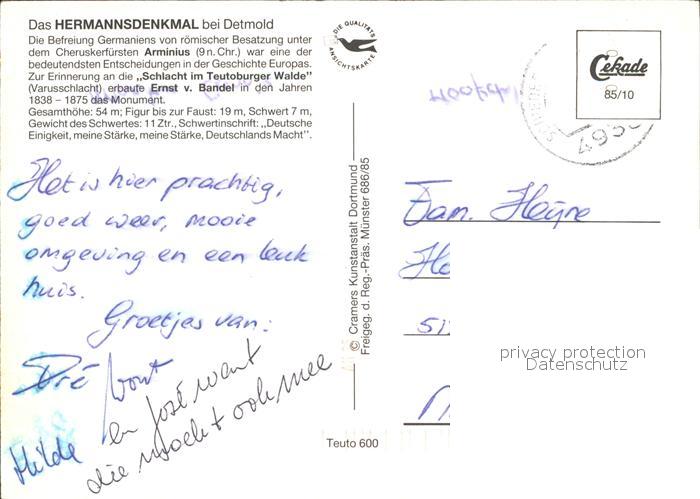 Das HERMANNSDENKMAL bei Detmold
Die Befreiung Germaniens von römischer Besatzung unter
dem Cheruskerfürsten Arminius (9 n. Chr.) war eine der
bedeutendsten Entscheidungen in der Geschichte Europas.
Zur Erinnerung an die „Schlacht im Teutoburger Walde"
(Varusschlacht) erbaute Ernst v. Bandel in den Jahren
1838 – 1875 das Monument.
Gesamthöhe: 54 m; Figur bis zur Faust: 19 m, Schwert 7 m,
Gewicht des Schwertes: 11 Ztr., Schwertinschrift: „Deutsche
Einigkeit, meine Stärke, meine Stärke, Deutschlands Macht".
Het is hier prachtig,
goed weer, mooie
omgeving en een leuk
huis.
Groetjes van:
Dré Wout
en José want
die mocht ook mee
Hilde
DIE QUALITÄTS
ANSICHTSKARTE
© Cramers Kunstanstalt Dortmund
Freigeg. d. Reg.-Präs. Münster 686/85
Teuto 600
Cekade
85/10
Fam.
privacy protection
Datenschutz